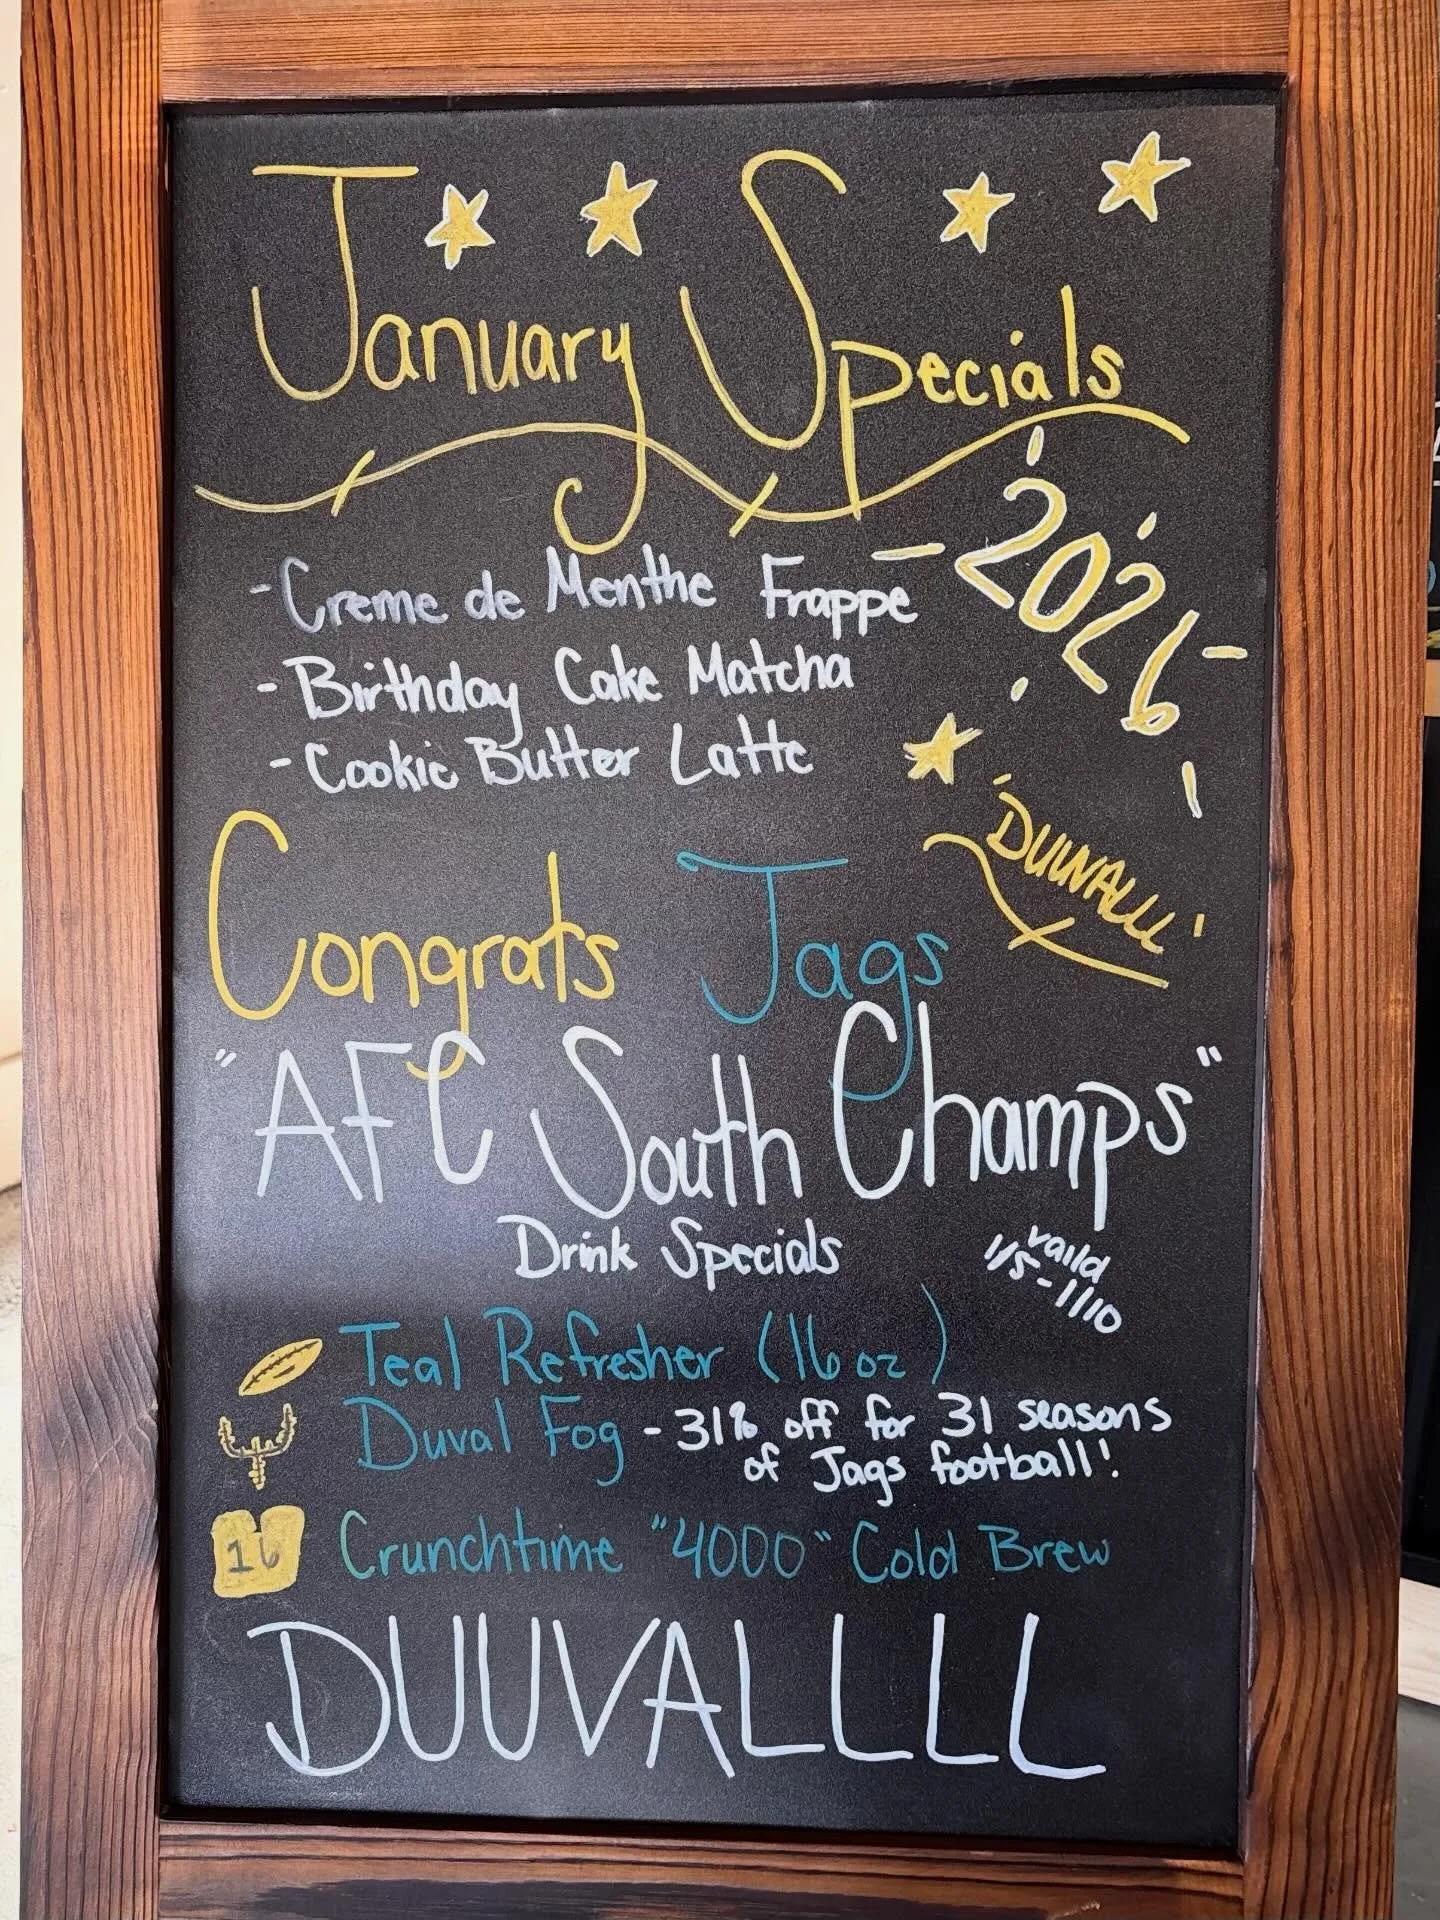 January Specials
2026
- Creme de Menthe Frappe
- Birthday Cake Matcha
- Cookie Butter Latte
'DUUVALLL'
Congrats Jags
"AFC South Champs"
Drink Specials
vaild
1/5-1/10
Teal Refresher (16 oz)
Duval Fog - 31% off for 31 seasons
of Jags football!
16
Crunchtime "4000" Cold Brew
DUUVALLLL